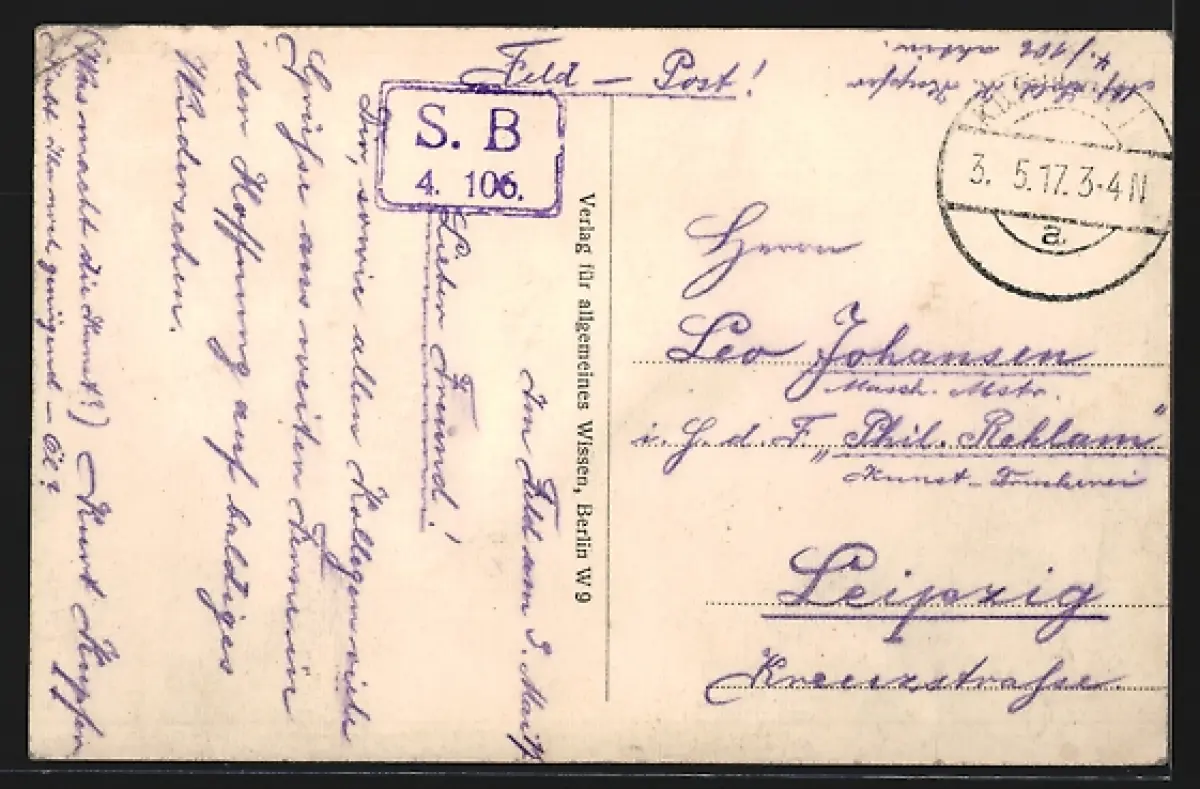 Feld – Post!
S. B
4. 106.
3. 5.17. 3-4 N
a.
Verlag für allgemeines Wissen, Berlin W 9
Herrn
Leo Johansen
Masch. Mstr.
i. H. d. F. „Phil. Reklam"
Kunst-Druckerei
Leipzig
Kreuzstraße.
Im Feld am 3. 
Lieber Freund!
Dir, sowie allen Kollegen viele
Grüsse aus weiten Fernen in
der Hoffnung auf baldiges
Wiedersehen.
(Was macht die Kunst?) Kurt
noch genügend –